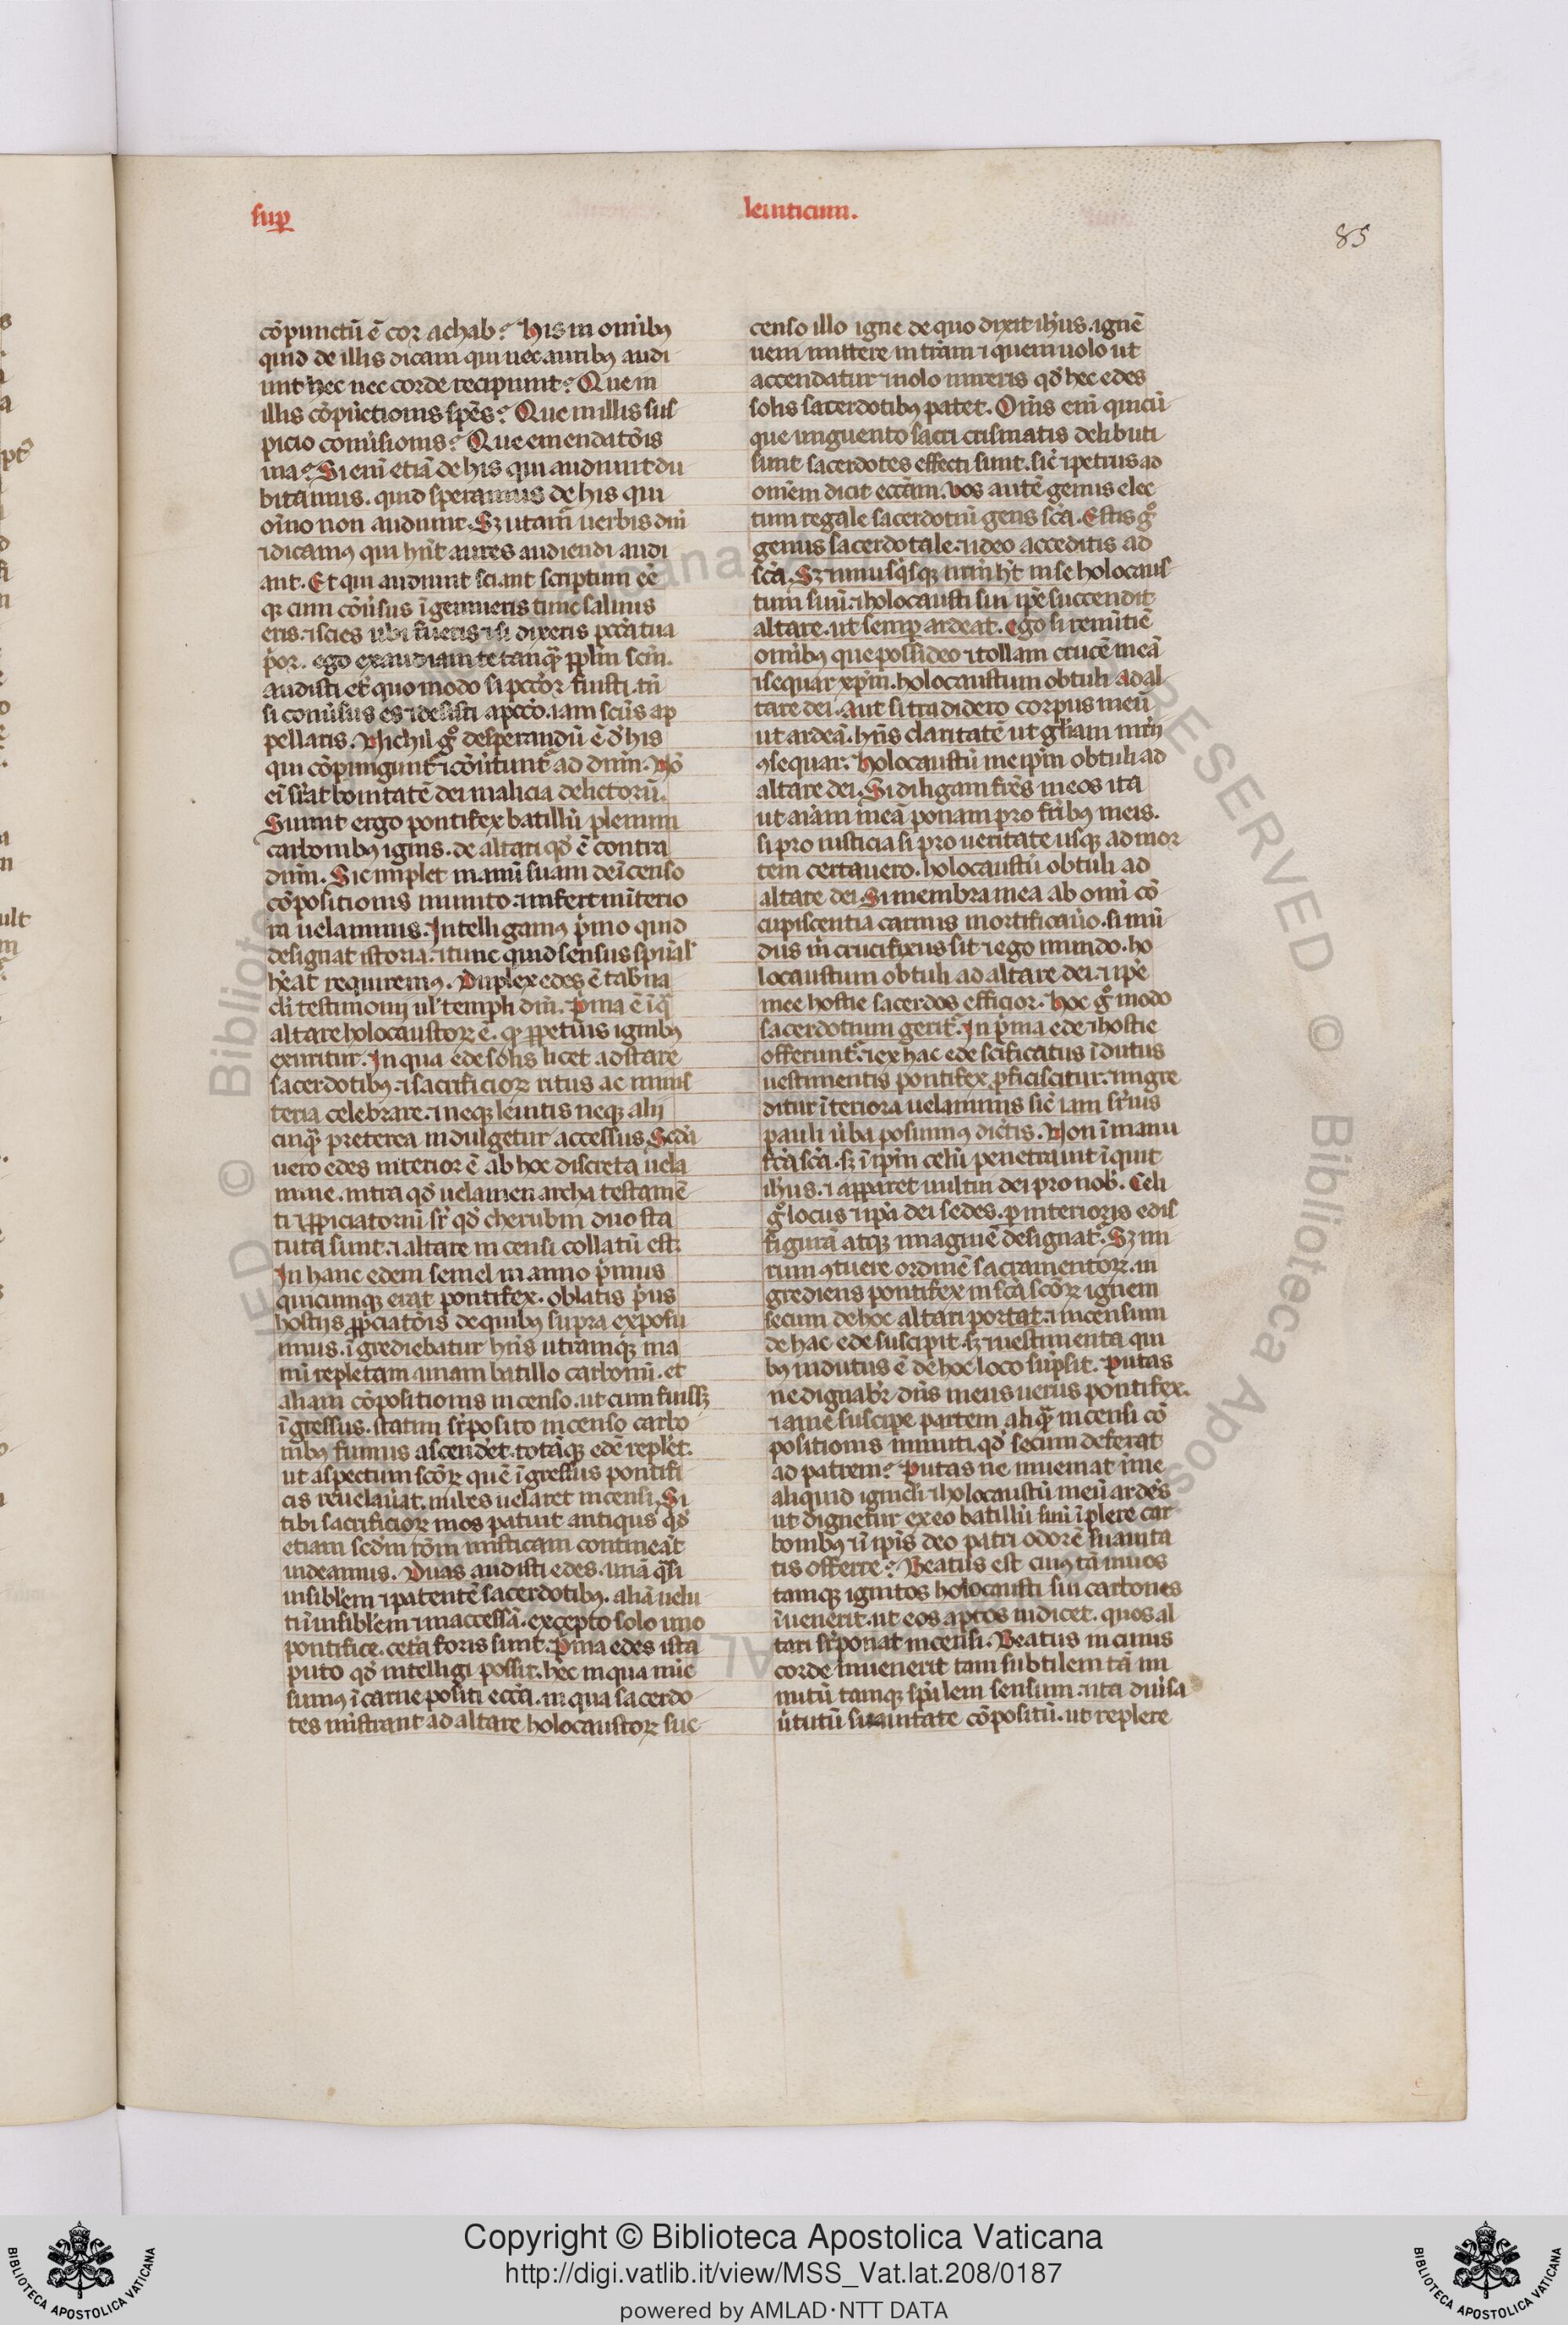 sup̱
leuiticum.
85
cōpunctū ē cor achab? His in om̄ibꝰ
quid de illis dicam qui nec auribꝰ audi
unt nec nec corde recipiunt? Que in
illis cōpūctionis spēs? Que in illis sus
picio conu̓sionis? Que emendatōis
uia? Si enī etiā de his qui audiunt du
bitamus. quid speramus de his qui
oīno non audiunt. Sꝫ utam̄ uerbis dn̄i
⁊ dicamꝰ qui hn̄t aures audiendi audi
ant. Et qui audiunt sciant scriptum eē
qꝛ cum cōu̓sus īgemueris tunc saluus
eris. ⁊ scies ubi fueris ⁊ si dixeris pctā tua
p̓or. ego exaudiam te tanqꝫ pplm̄ scm̄.
audisti et̓ quomodo si pctōr fuisti. tn̄
si conu̓sus es ⁊ desisti a pctō. iam scūs ap
pellaris. Nichil gͦ desperandū ē d̓ his
qui cōpungunt̉ ⁊ cōu̓tunt̉ ad dn̄m. Nō
eī sup̱at bonitatē dei malicia delictorū.
Sumit ergo pontifex batillū plenum
carbonibꝰ ignis. de altari qd̓ ē contra
dn̄m. Sic implet manū suam de īcenso
cōpositionis minuto. ⁊ infert in īterio
ra uelaminis. Intelligamꝰ p̓mo quid
designat istoria. ⁊ tunc quid sensus spūal̓
hēat requiremꝰ. Duplex edes ē tab̓na
cl̓i testimonij ul̓ templi dn̄i. P̓ma ē ī q̄
altare holocaustoꝝ ē. qd̓ ppetuis ignibꝰ
exuritur. In qua ede solis licet adstare
sacerdotibꝰ. ⁊ sacrificioꝝ ritus ac minis
teria celebrare. ⁊ neqꝫ leuitis neqꝫ alij
cuiqꝫ preterea indulgetur accessus. Scd̓a
uero edes interior ē ab hoc discreta uela
mine. intra qd̓ uelamen archa testamē
ti ⁊ ppiciatoriū sr̓ qd̓ cherubin duo sta
tuta sunt. ⁊ altare incensi collatū est.
In hanc edem semel in anno p̓mus
quicumqꝫ erat pontifex. oblatis p̓us
hostijs ppiciatōis de quibꝰ supra exposu
imus. īgrediebatur hn̄s utramqꝫ ma
nū repletam. unam batillo carbonū. et
aliam cōpositionis incenso. ut cum fuissꝫ
īgressus. statim sr̓posito incenso carbo
nibꝰ fumus ascend̓et. totāqꝫ edē repl̓et.
ut aspectum scōꝝ quē īgressus pontifi
cis reuelau̓at. nubes uelaret incensi. Si
tibi sacrificioꝝ mos patuit antiquꝰ qd̓
etiam scd̓m rōm misticam contineat
uideamus. Duas audisti edes. unā q̓si
uisiblem ⁊ patentē sacerdotibꝰ. aliā uelu
ti ⁊ īuisiblem ⁊ inaccessā. excepto solo uno
pontifice. cet̓a foris sunt. P̓ma edes ista
puto qd̓ intelligi possit. hec in qua nūc
sumꝰ ī carne positi ecc̄a. in qua sacerdo
tes mīstrant ad altare holocaustoꝝ suc
censo illo igne de quo dixit ih̄us. ignē
ueni mittere in trām ⁊ quem uolo ut
accendatur ⁊ nolo mireris qd̓ hec edes
solis sacerdotibꝰ patet. Om̄s enī quicū
que unguento sacri crismatis delibuti
sunt sacerdotes effecti sunt. sic̄ ⁊ petrus ad
omēm dicit ecc̄am. Vos autē genus elec
tum regale sacerdotiū gens scā. Estis gͦ
genus sacerdotale. ⁊ ideo acceditis ad
scā. Sꝫ unusq̓sqꝫ nr̄m ht̄ in se holocaus
tum suū. ⁊ holocausti sui ip̄e succendit
altare. ut semp̱ ardeat. Ego si renūtiē
om̄ibꝰ que possideo ⁊ tollam crucē meā
⁊ sequar xp̄m. holocaustum obtuli ad al
tare dei. Aut si tradidero corpus meū
ut ardeā. hn̄s claritatē ut gl̓iam mr̄ij
ꝯsequar. Holocaustū me ip̄m obtuli ad
altare dei. Si diligam fr̄es meos ita
ut aīam meā ponam pro fr̄ibꝰ meis.
si pro iusticia si pro ueritate usqꝫ ad mor
tem certauero. holocaustū obtuli ad
altare dei. Si membra mea ab om̄i cō
cupiscentia carnis mortificau̓o. si mū
dus m̓ crucifixus sit ⁊ ego mundo. ho
locaustum obtuli ad altare dei. ⁊ ip̄e
mee hostie sacerdos efficior. Hoc gͦ modo
sacerdotium gerit̉. In p̓ma ede ⁊ hostie
offerunt̉. ⁊ ex hac ede scīficatus īdutus
uestimentis pontifex p̱ficiscitur. ⁊ ingre
ditur īteriora uelaminis sic̄ iam sr̓ius
pauli u̓ba posuimꝰ dictis. Non ī manu
fc̄a scā. sꝫ ī ip̄m celū penetrauit īquit
ih̄us. ⁊ apparet uultui dei pro nob̓. Celi
gͦ locus ⁊ ip̄a dei sedes. p̱ interioris edis
figurā atqꝫ imaginē designat̉. Sꝫ mi
rum ꝯtuere ordinē sacramentoꝝ. in
grediens pontifex in scā scōꝝ ignem
secum de hoc altari portat. ⁊ incensum
de hac ede suscipit. sꝫ ⁊ uestimenta qui
bꝰ indutus ē de hoc loco sūpsit. Putas
ne dignabit̉ dn̄s meus uerus pontifex.
⁊ a me suscipe partem aliqꝫ incensi cō
positionis minuti. qd̓ secum deferat
ad patrem? Putas ne inueniat ī me
aliquid ignicl̓i ⁊ holocaustū meū ardēs
ut dignetur ex eo batillū suū īplere car
bonibꝰ ⁊ ī ip̄is deo patri odorē suauita
tis offerre? Beatus est cuiꝰ tā uiuos
tamqꝫ ignitos holocausti sui carbones
īuenerit. ut eos aptos iudicet. quos al
tari sr̓ponat incensi. Beatus in cuius
corde inuenerit tam subtilem tā mi
nutū tamqꝫ sp̄alem sensum. ⁊ ita diu̓sa
u̓tutū suauitate cōpositū. ut replere
Copyright © Biblioteca Apostolica Vaticana
http://digi.vatlib.it/view/MSS_Vat.lat.208/0187
powered by AMLAD·NTT DATA
BIBLIOTECA APOSTOLICA VATICANA
BIBLIOTECA APOSTOLICA VATICANA